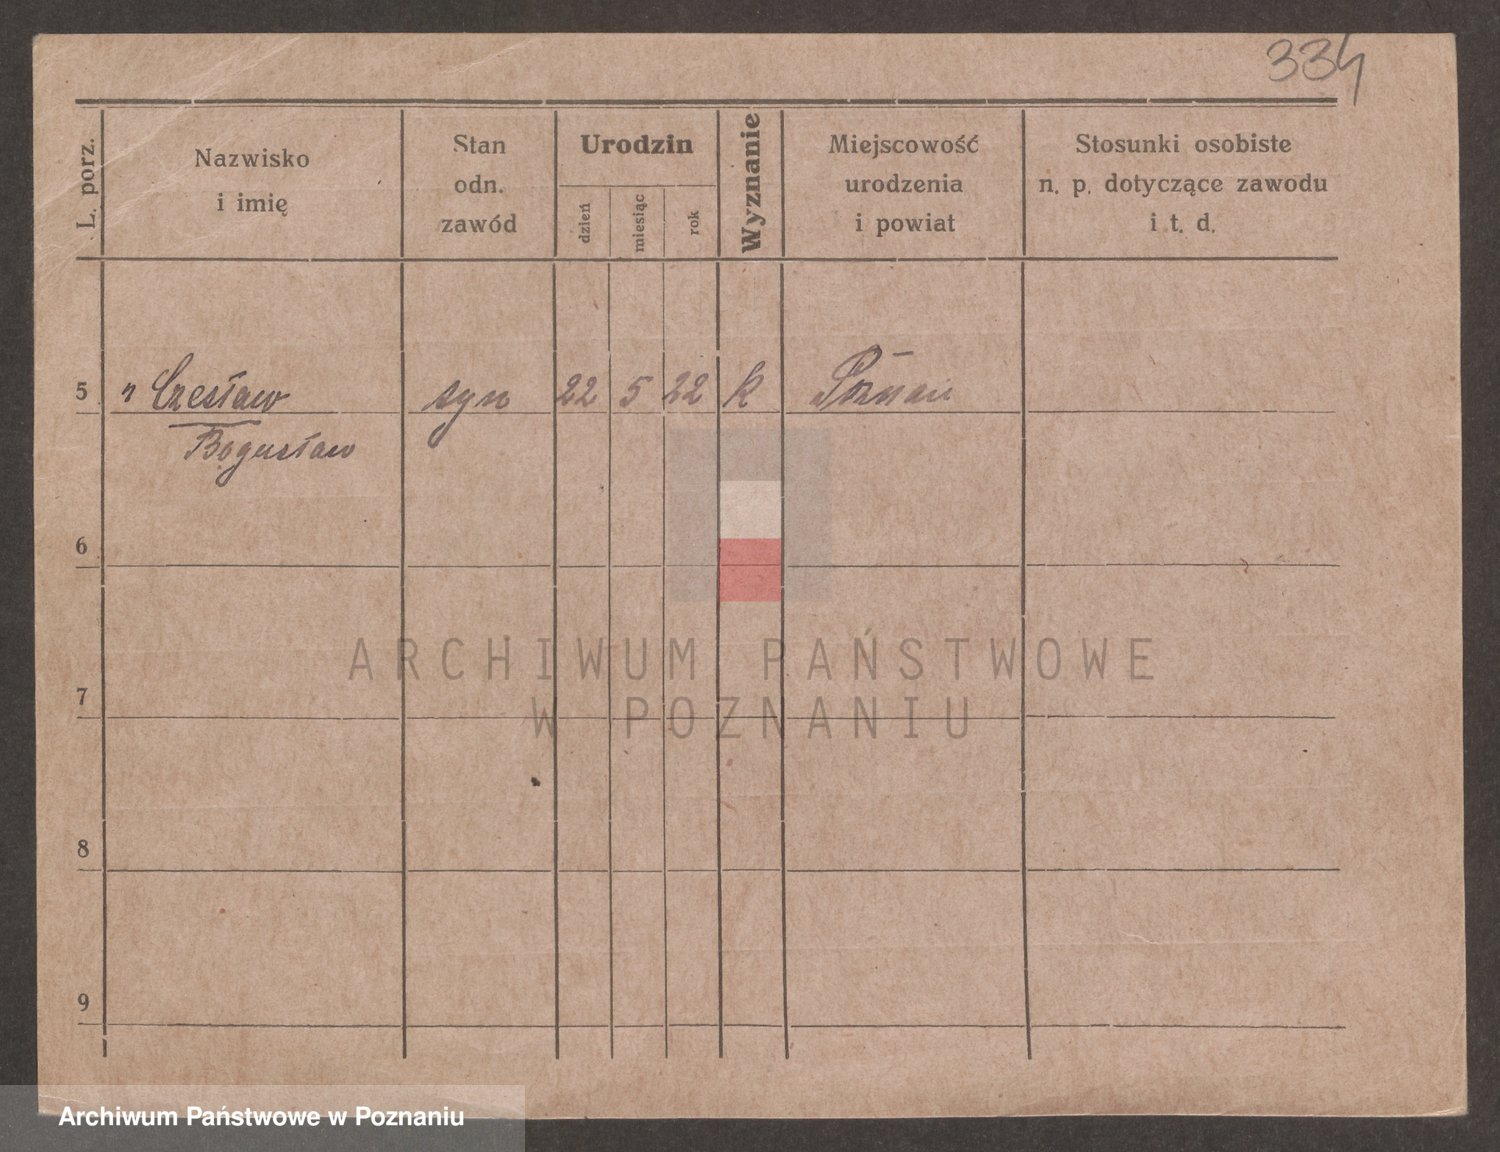 334
L. porz.
Nazwisko
i imię
Stan
odn.
zawód
Urodzin
dzień
miesiąc
rok
Wyznanie
Miejscowość
urodzenia
i powiat
Stosunki osobiste
n. p. dotyczące zawodu
i t. d.
5 " Czesław syn 22 5 22 k Poznań
Bogusław
6
7
8
9
ARCHIWUM PAŃSTWOWE
W POZNANIU
Archiwum Państwowe w Poznaniu